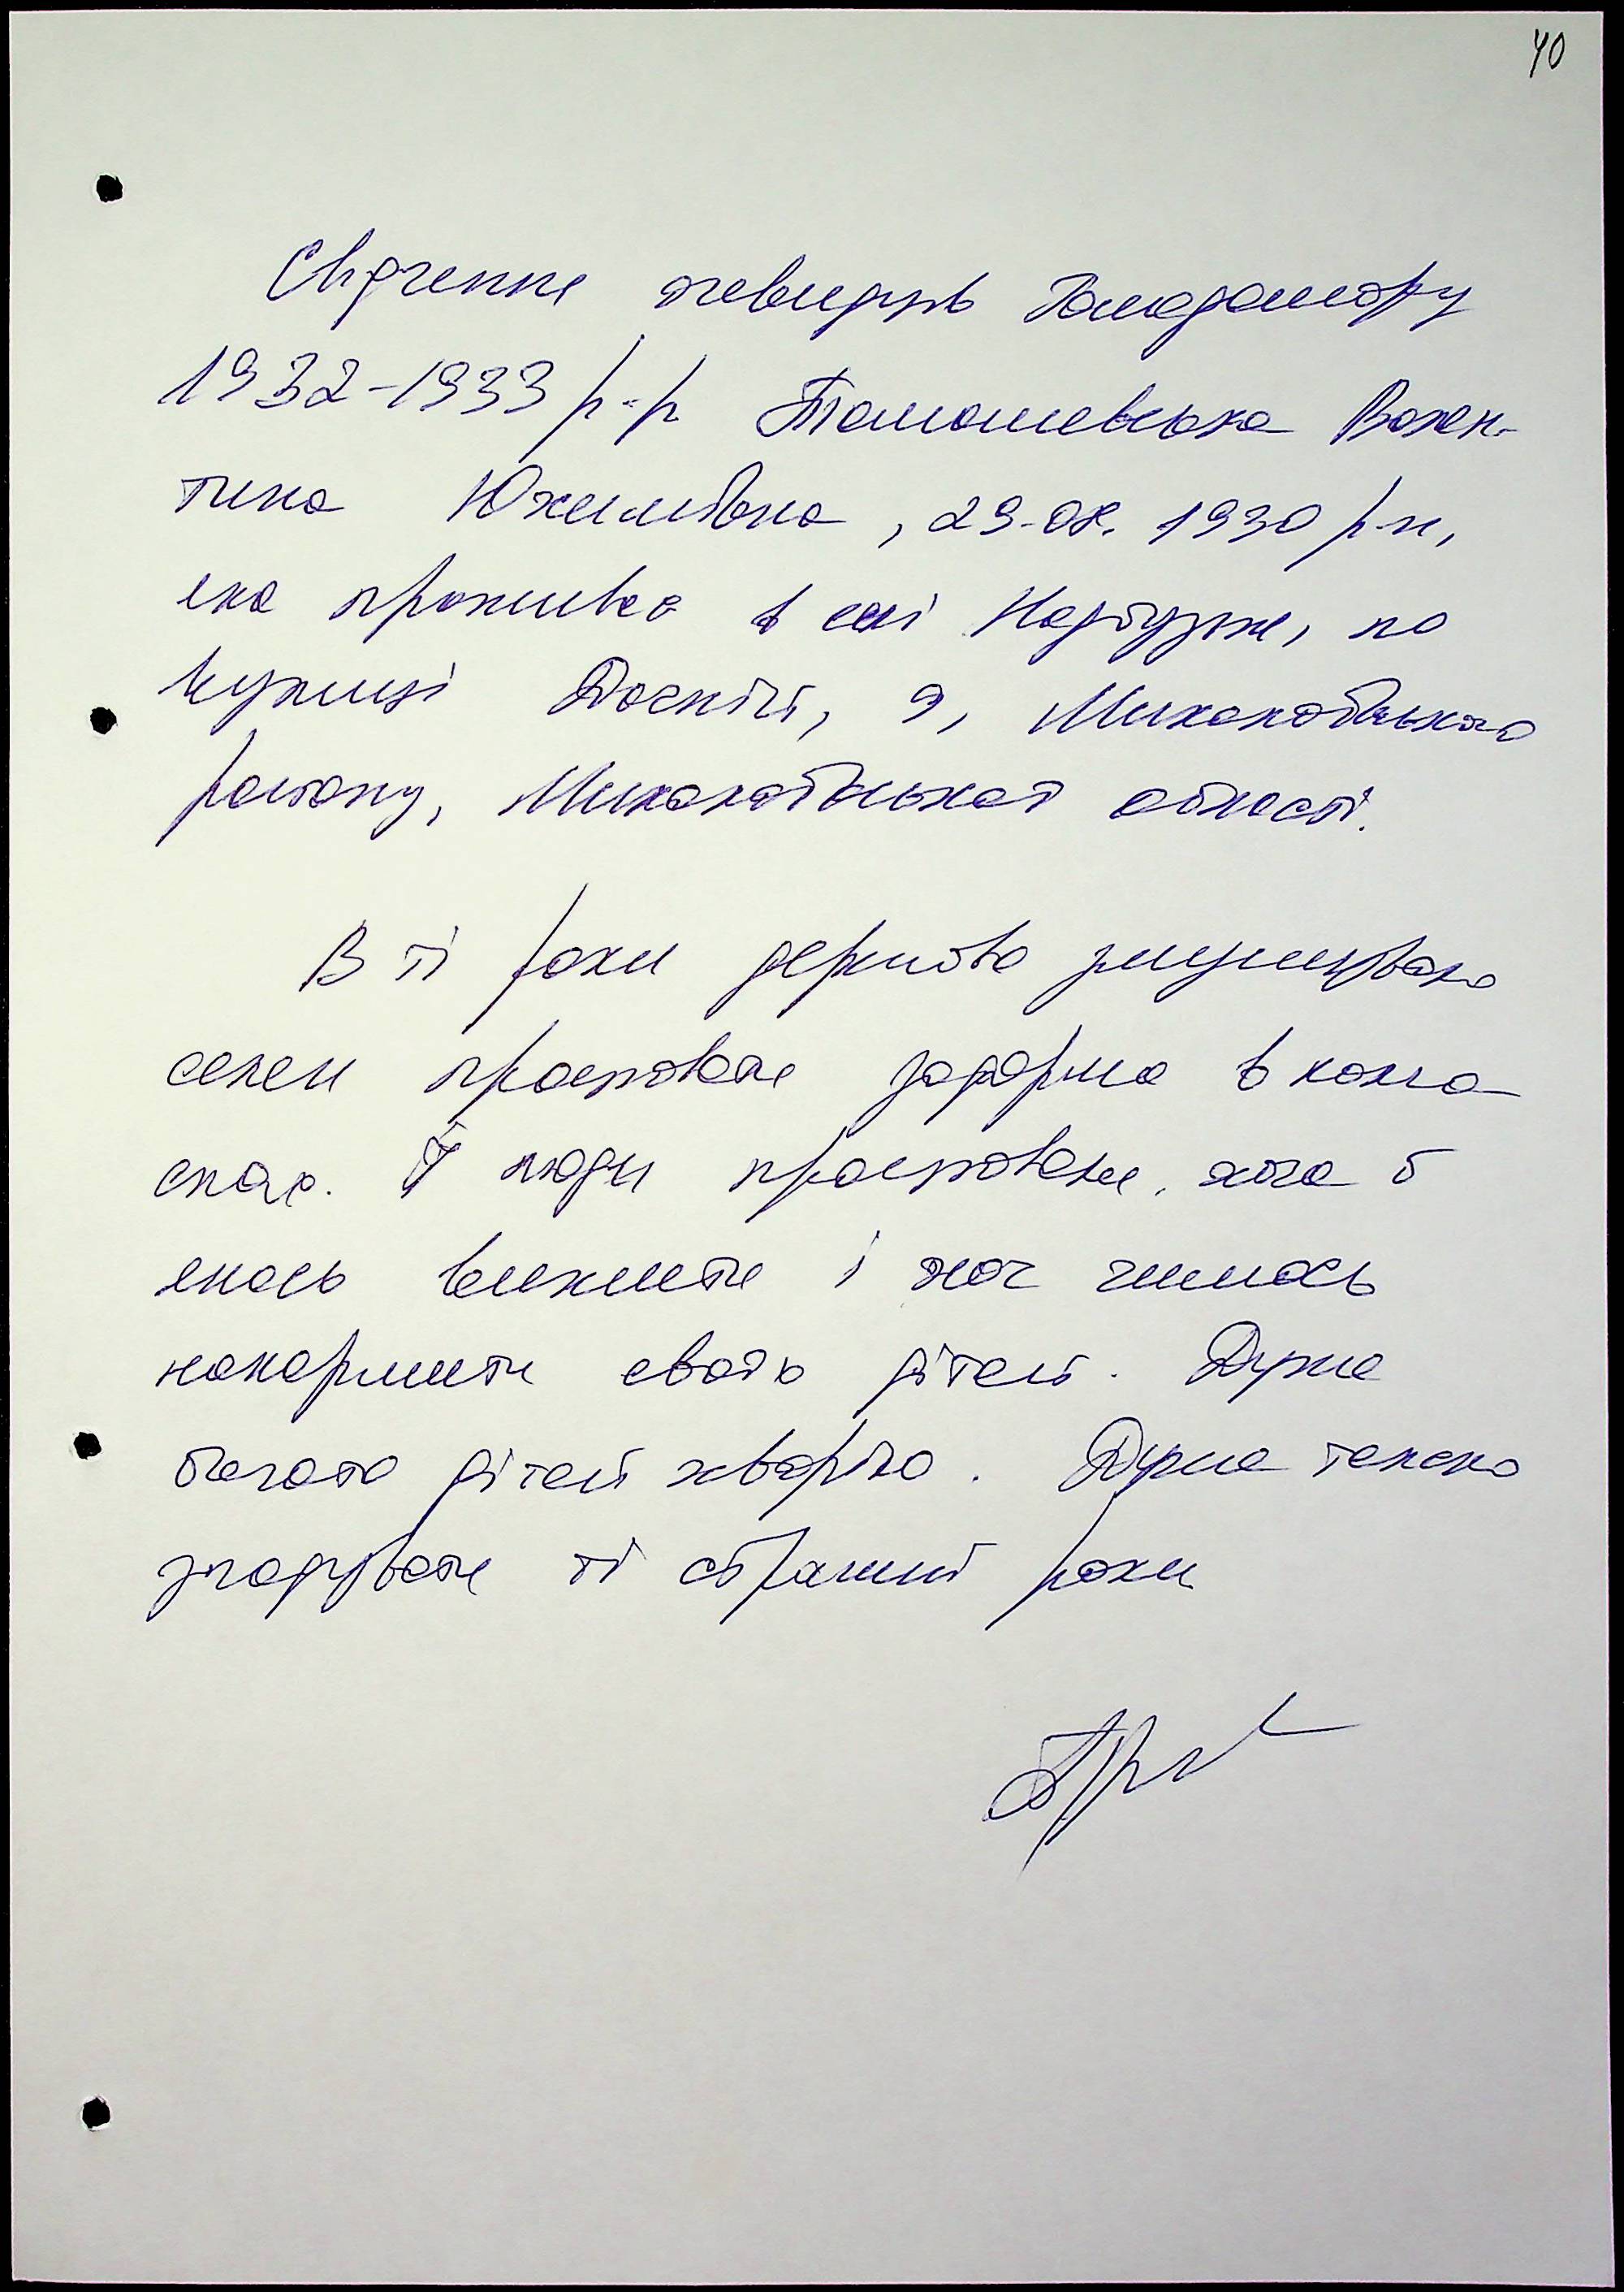 40
Свідчення очевидців Голодомору
1932-1933 р-р Томашевська Вален-
тина Юхимівна, 29-08. 1930 р-н,
яка проживає в селі Надбузьке, по
вулиці Росністі, 9, Миколаївського
району, Миколаївської області.
В ті роки держава змушувала
селян працювати задарма в колго
спах. Й люди працювали, хоча б
якось вижити і хоч чимось
накормити своїх дітей. Дуже
багато дітей хворіло. Дуже тяжко
згадувати ті страшні роки